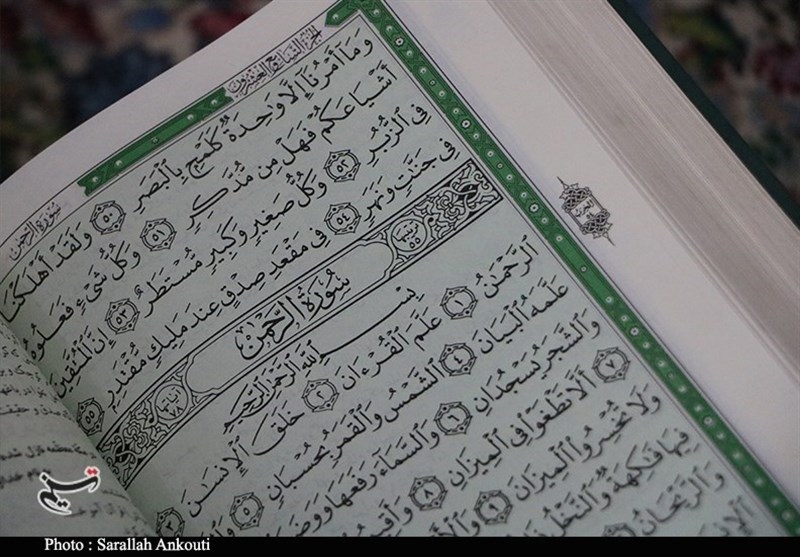 الجزء السابع والعشرون
سورة الرحمن
وَمَآ أَمْرُنَآ إِلَّا وَٰحِدَةٌ كَلَمْحٍۭ بِٱلْبَصَرِ ٥٠ وَلَقَدْ أَهْلَكْنَآ
أَشْيَاعَكُمْ فَهَلْ مِن مُّدَّكِرٍ ٥١ وَكُلُّ شَىْءٍ فَعَلُوهُ
فِى ٱلزُّبُرِ ٥٢ وَكُلُّ صَغِيرٍ وَكَبِيرٍ مُّسْتَطَرٌ ٥٣ إِنَّ ٱلْمُتَّقِينَ
فِى جَنَّٰتٍ وَنَهَرٍ ٥٤ فِى مَقْعَدِ صِدْقٍ عِندَ مَلِيكٍ مُّقْتَدِرٍۭ ٥٥
سُورَةُ الرَّحْمٰن
بِسْمِ ٱللَّهِ ٱلرَّحْمَٰنِ ٱلرَّحِيمِ
ٱلرَّحْمَٰنُ ١ عَلَّمَ ٱلْقُرْءَانَ ٢ خَلَقَ ٱلْإِنسَٰنَ ٣
عَلَّمَهُ ٱلْبَيَانَ ٤ ٱلشَّمْسُ وَٱلْقَمَرُ بِحُسْبَانٍ ٥
وَٱلشَّجَرُ يَسْجُدَانِ ٦ وَٱلسَّمَآءَ رَفَعَهَا
٧ أَلَّا تَطْغَوْا۟ فِى ٱلْمِيزَانِ ٨
وَلَا تُخْسِرُوا۟ ٱلْمِيزَانَ
فِيهَا فَٰكِهَةٌ وَٱلنَّخْلُ
وَٱلرَّيْحَانُ
تسنیم
Photo : Sarallah Ankouti